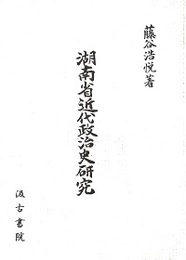 藤谷浩悦著
湖南省近代政治史研究
汲古書院